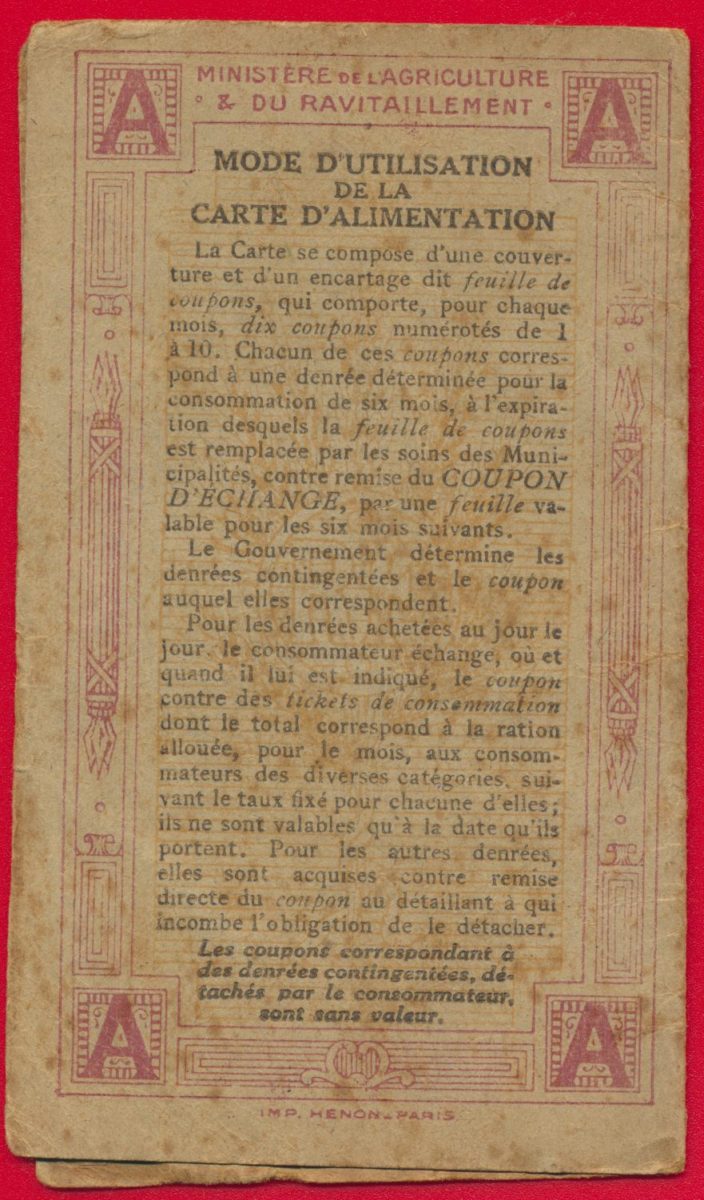 MINISTÈRE DE L'AGRICULTURE
& DU RAVITAILLEMENT
A
A
MODE D'UTILISATION
DE LA
CARTE D'ALIMENTATION
La Carte se compose d'une couver-
ture et d'un encartage dit feuille de
coupons, qui comporte, pour chaque
mois, dix coupons numérotés de 1
à 10. Chacun de ces coupons corres-
pond à une denrée déterminée pour la
consommation de six mois, à l'expira-
tion desquels la feuille de coupons
est remplacée par les soins des Muni-
cipalités, contre remise du COUPON
D'ÉCHANGE, par une feuille va-
lable pour les six mois suivants.
Le Gouvernement détermine les
denrées contingentées et le coupon
auquel elles correspondent.
Pour les denrées achetées au jour le
jour, le consommateur échange, où et
quand il lui est indiqué, le coupon
contre des tickets de consommation
dont le total correspond à la ration
allouée, pour le mois, aux consom-
mateurs des diverses catégories, sui-
vant le taux fixé pour chacune d'elles;
ils ne sont valables qu'à la date qu'ils
portent. Pour les autres denrées,
elles sont acquises contre remise
directe du coupon au détaillant à qui
incombe l'obligation de le détacher.
Les coupons correspondant à
des denrées contingentées, dé-
tachés par le consommateur,
sont sans valeur.
A
A
IMP. HENON-PARIS